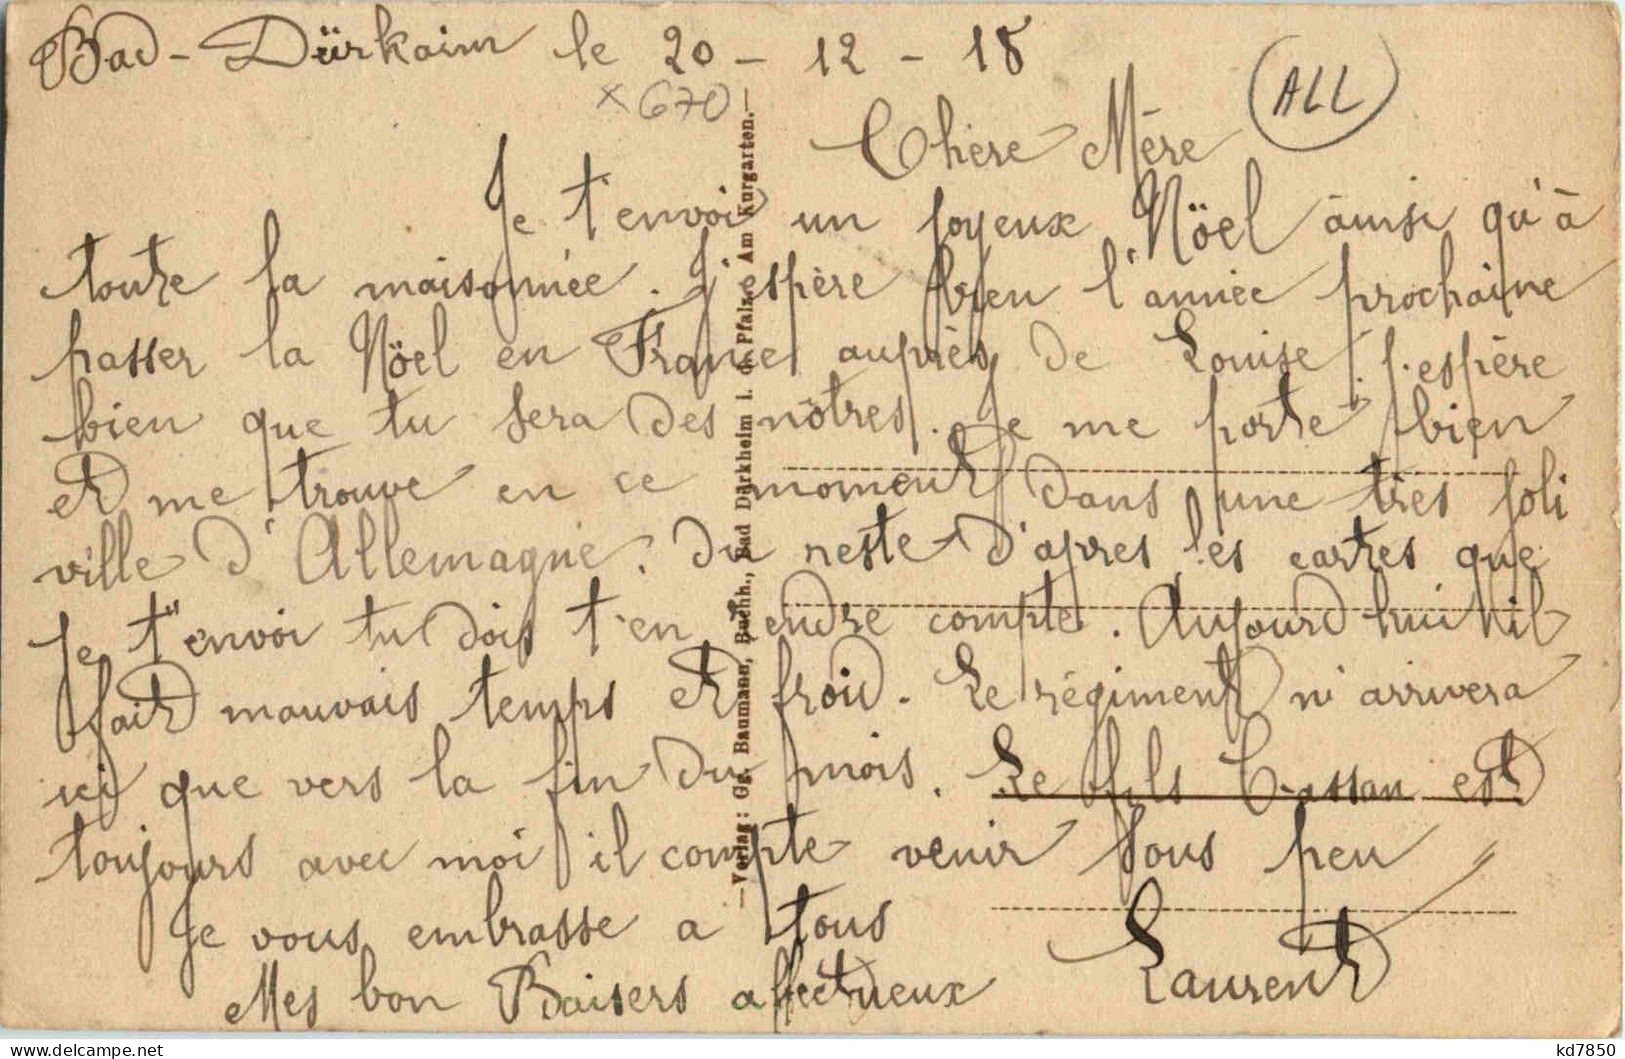 Bad-Dürkaim le 20-12-18
×670
ALL
Chère Mère
Je t'envoi un joyeux Nöel äinsi qu'à
toute la maisonnée. J'espère bien l'année prochaine
passer la Nöel en France auprès de Louise. j'espère
bien que tu sera des nôtres. Je me porte bien
et me trouve en ce moment dans une tres joli
ville d'Allemagne. Du reste d'apres les cartes que
Je t'envoi tu dois t'en rendre compte. Aujourd'hui il
fait mauvais temps et froid. Le régiment n'arrivera
ici que vers la fin du mois. Le fils Cassan est
toujours avec moi il compte venir sous peu
Je vous embrasse a tous
Mes bon Baisers affectueux Laurent
—Verlag: Gg. Baumann, Buchh., Bad Dürkheim i. d. Pfalz. Am Kurgarten.—
kd7850